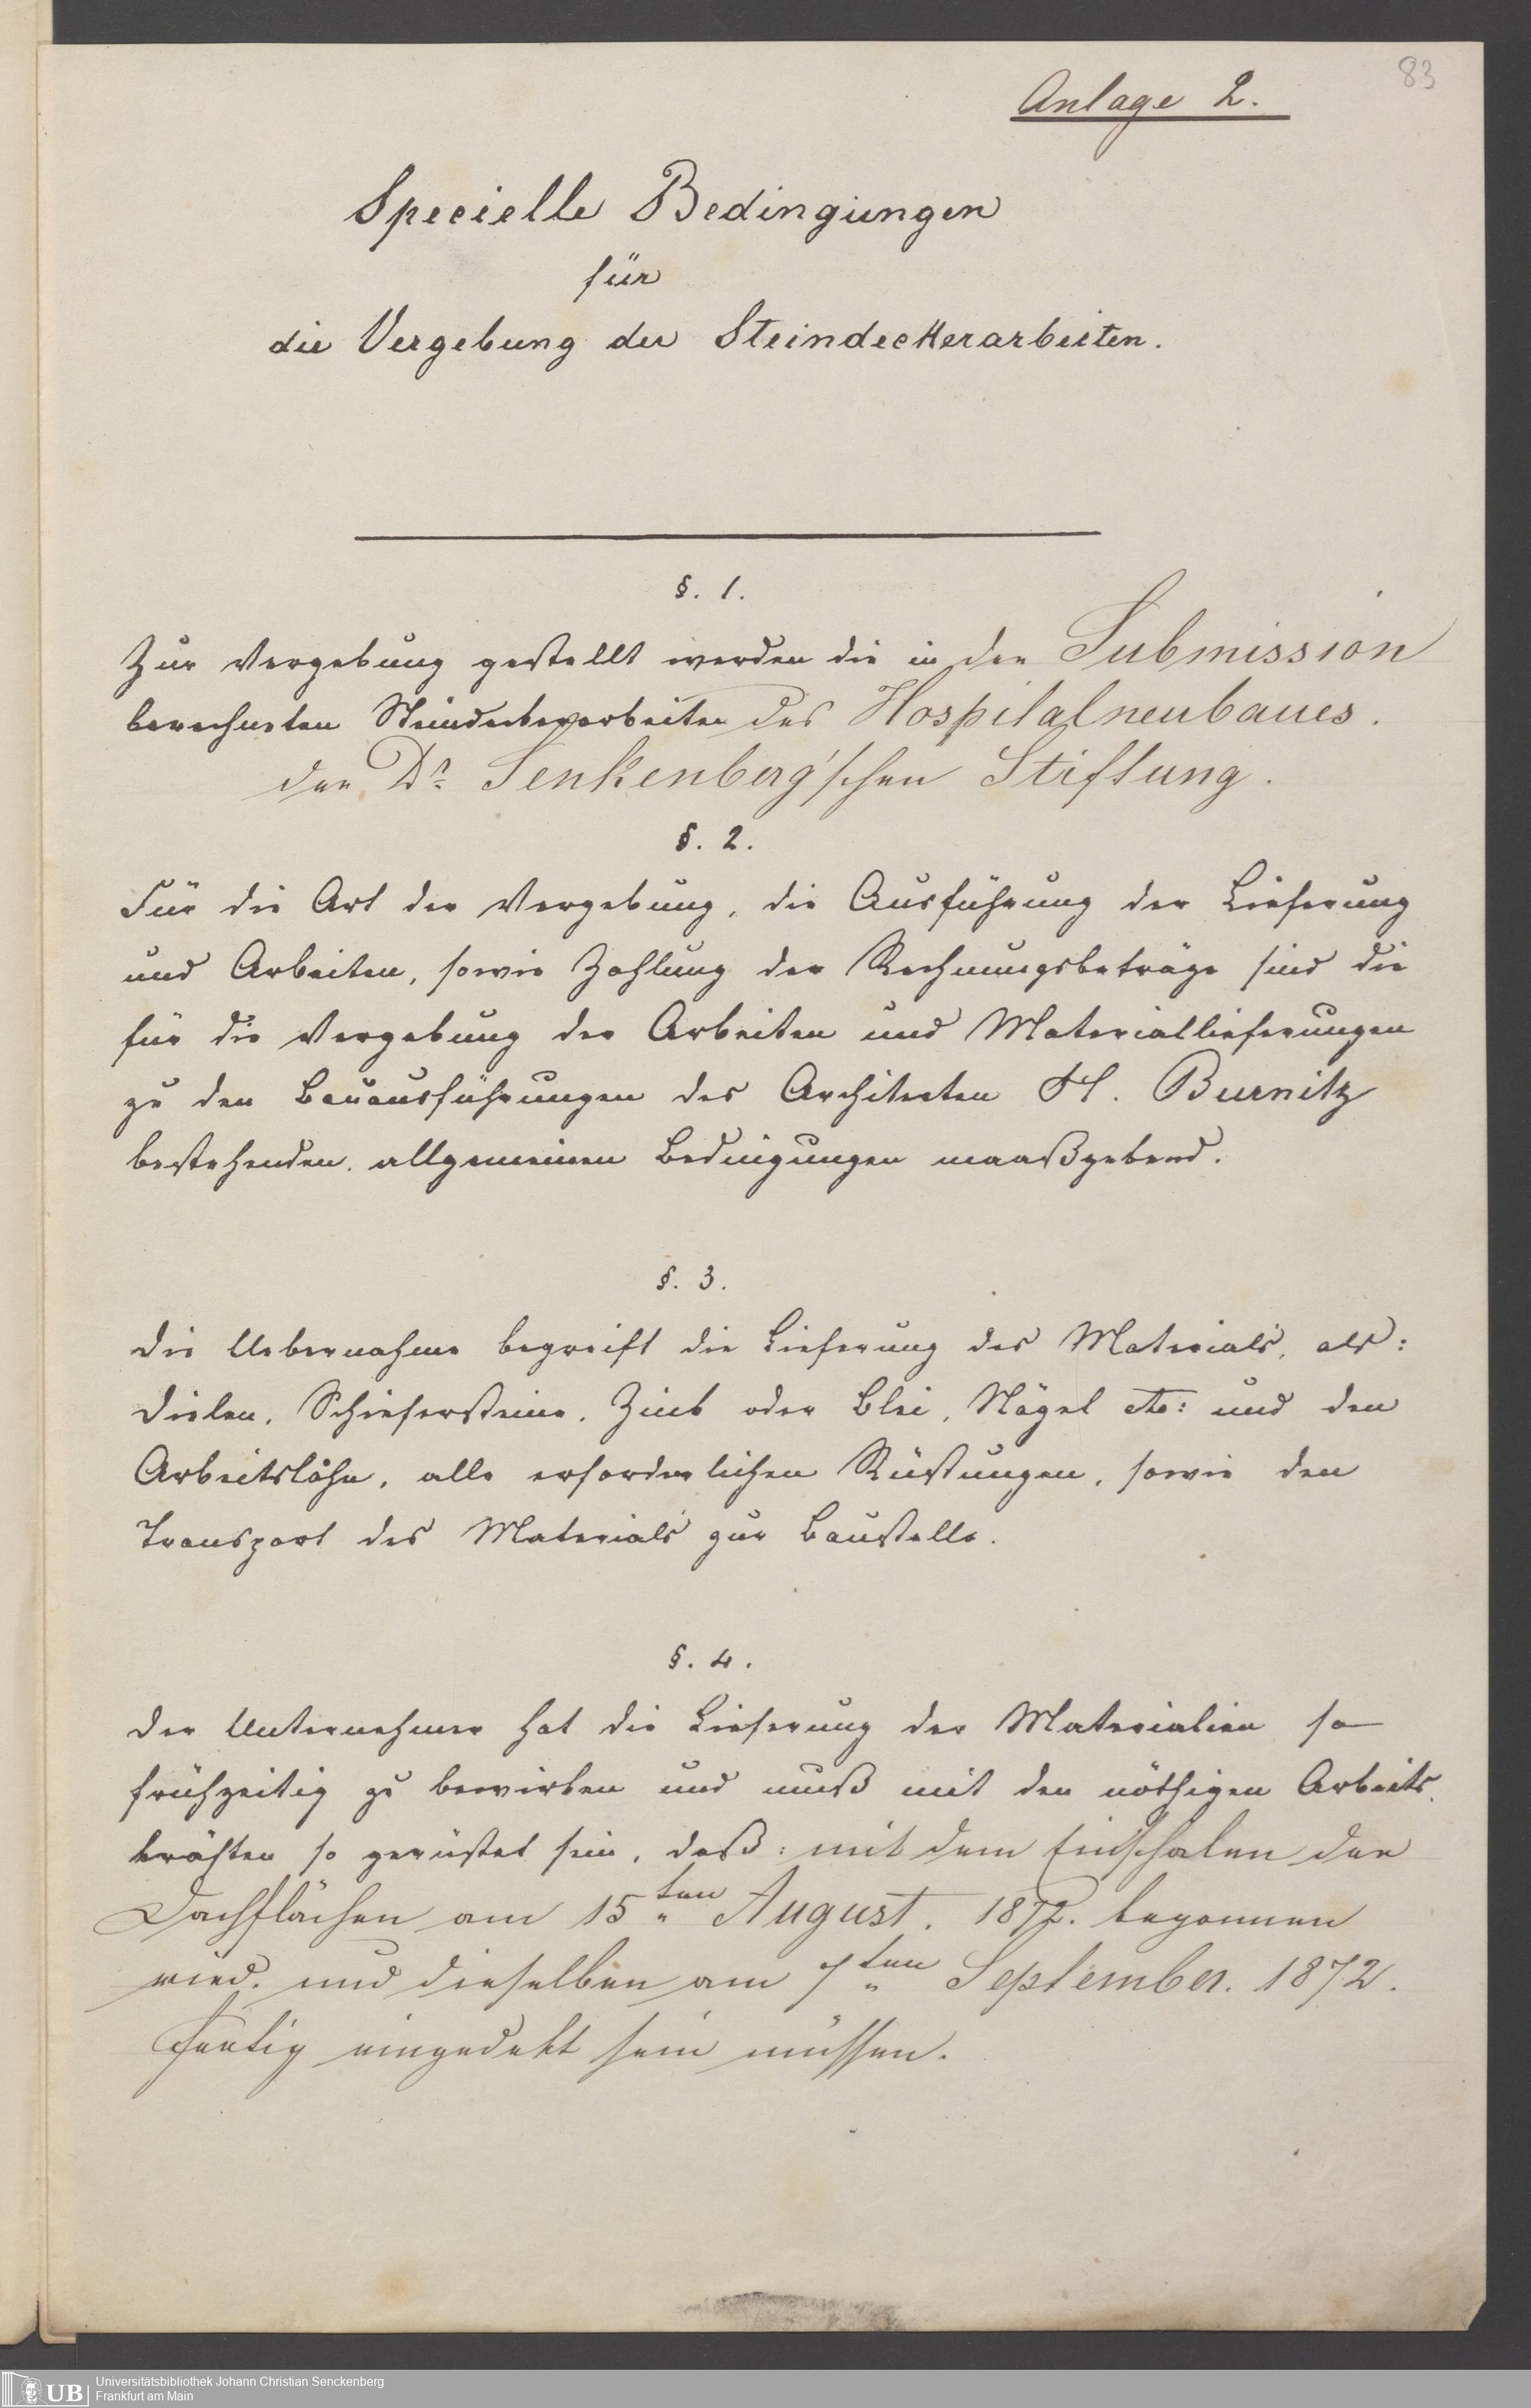 83
Anlage 2.
Specielle Bedingungen
für
die Vergebung der Steindeckerarbeiten.
§. 1.
Zur Vergebung gestellt werden die in der Submission
berechneten Steindeckerarbeiten des Hospitalneubaues.
der Dr. Senkenberg'schen Stiftung.
§. 2.
Für die Art der Vergebung, die Ausführung der Lieferung
und Arbeiten, sowie Zahlung der Rechnungsbeträge sind die
für die Vergebung der Arbeiten und Materiallieferungen
zu den Bauausführungen des Architecten H. Burnitz
bestehenden allgemeinen Bedingungen maaßgebend.
§. 3.
Die Uebernahme begreift die Lieferung des Materials, als:
Dielen, Schiefersteine, Zink oder Blei, Nägel etc: und den
Arbeitslohn, alle erforderlichen Rüstungen, sowie den
Transport des Materials zur Baustelle.
§. 4.
Der Unternehmer hat die Lieferung der Materialien so
frühzeitig zu bewirken und muß mit den nöthigen Arbeits-
kräften so gerüstet sein, daß: mit dem Einschalen der
Dachflächen am 15ten August. 1872. begonnen
wird. und dieselben am 7ten September. 1872.
fertig eingedekt sein müssen.
UB Universitätsbibliothek Johann Christian Senckenberg
Frankfurt am Main